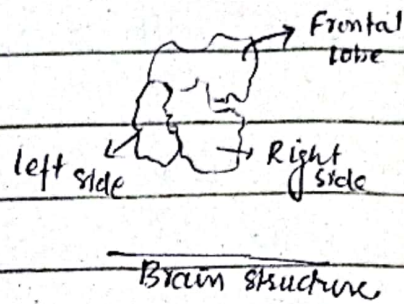 Frontal
lobe
left side
Right
side
Brain structure